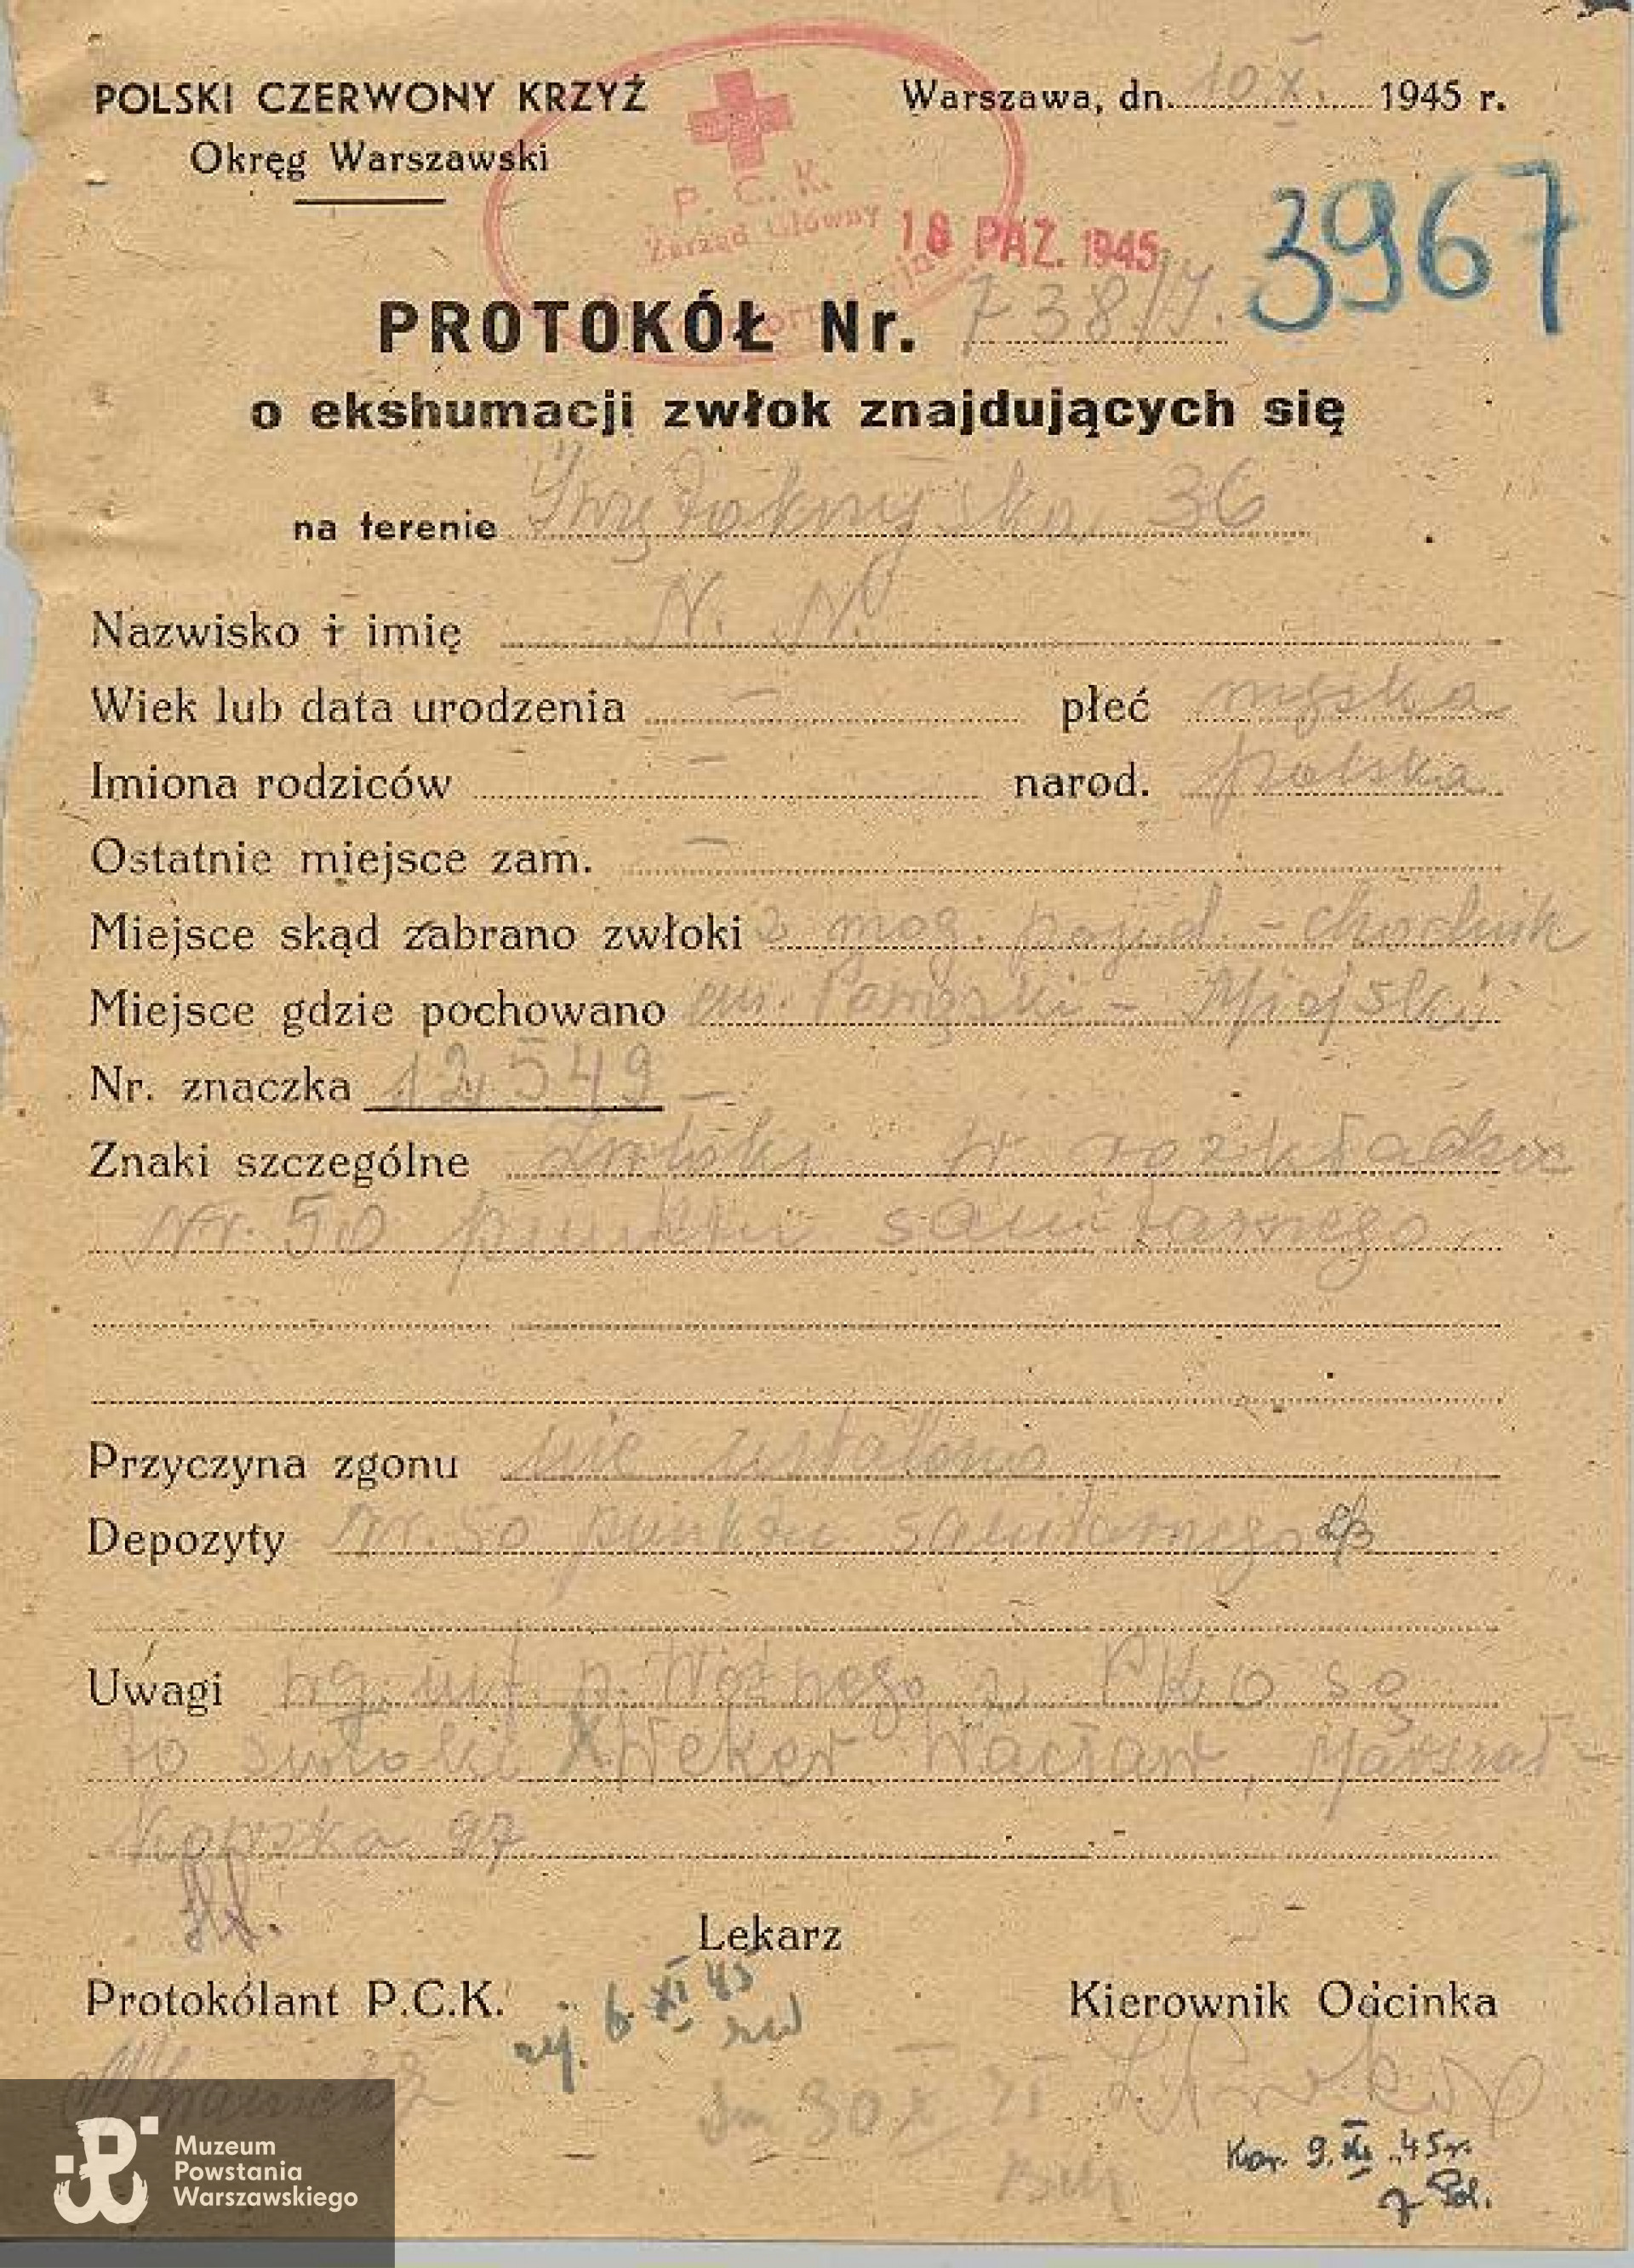 POLSKI CZERWONY KRZYŻ
Okręg Warszawski
Warszawa, dn. 10 X. 1945 r.
P. C. K.
Zarząd Główny
18 PAŹ. 1945
3967
PROTOKÓŁ Nr. 738/J.
o ekshumacji zwłok znajdujących się
na terenie Świętokrzyska 36
Nazwisko i imię N. N.
Wiek lub data urodzenia — płeć męska
Imiona rodziców — narod. polska
Ostatnie miejsce zam. —
Miejsce skąd zabrano zwłoki z mog. pojed. - chodnik
Miejsce gdzie pochowano cm. Powązki - Miejski
Nr. znaczka 12549 —
Znaki szczególne zwłoki w rozkładzie
Nr. 50 punktu sanitarnego.
Przyczyna zgonu nie ustalono
Depozyty Nr. 50 punktu sanitarnego
Uwagi wg. inf. p. Woźnego z PKO są
to zwłoki Weker Wacław, Marszał-
kowska 97
Lekarz
Protokólant P.C.K.
Kierownik Odcinka
6. XI 45
30 X
Kar. 9. XI. 45 r.
Muzeum
Powstania
Warszawskiego